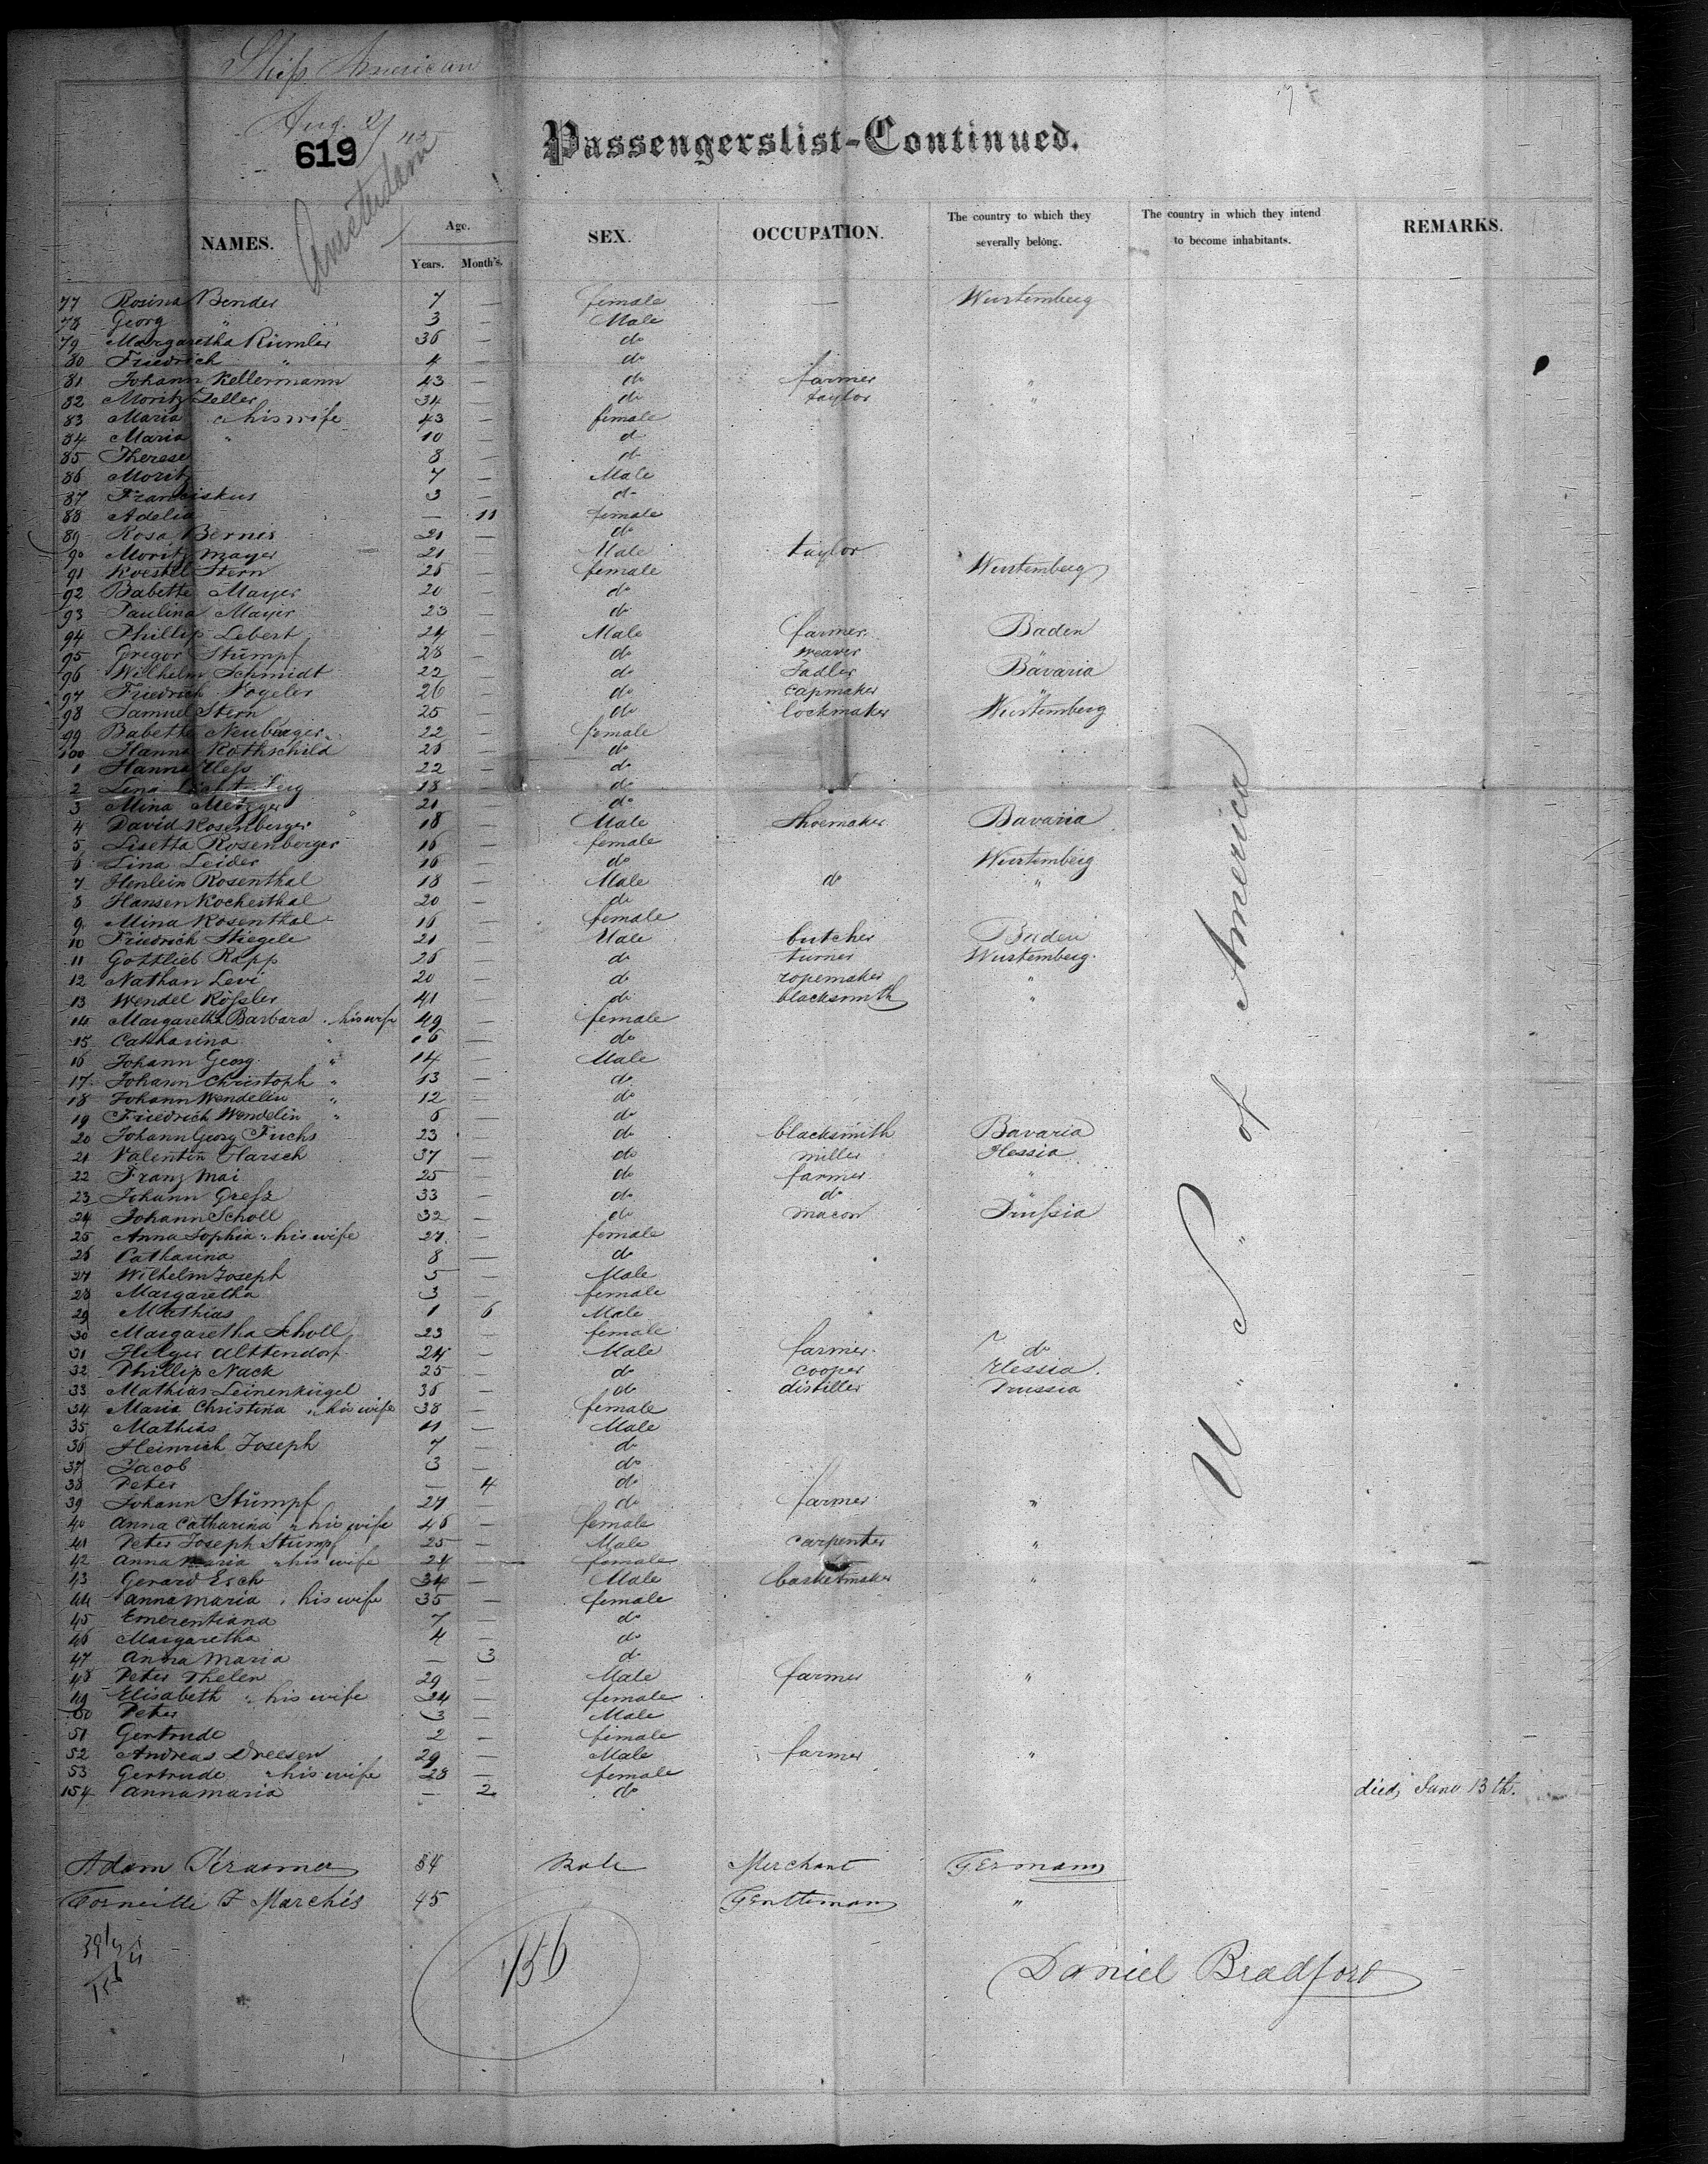 Ship American
Aug. 2/43
619
Amsterdam
Passengerslist-Continued.
NAMES. Age. SEX. OCCUPATION. The country to which they severally belong. The country in which they intend to become inhabitants. REMARKS.
Years. Month's.
77 Rosina Bender 7 — female — Wurtemberg
78 Georg " 3 — Male
79 Margaretha Rümler 36 — do
80 Friedrich " 4 — do
81 Johann Kellermann 43 — do farmer "
82 Moritz Zeller 34 — do taylor "
83 Maria " his wife 43 — female
84 Maria " 10 — do
85 Therese 8 — do
86 Moritz 7 — Male
87 Franciskus 3 — do
88 Adelia — 11 female
89 Rosa Berner 21 — do
90 Moritz Mayer 21 — Male taylor
91 Stern 25 — female Wurtemberg
92 Babette Mayer 20 — do
93 Paulina Mayer 23 — do
94 Phillip Lebert 24 — Male farmer Baden
95 Gregor Stümpf 28 — do weaver
96 Wilhelm Schmidt 22 — do Sadler Bavaria
97 Friedrich Vogeler 26 — do capmaker "
98 Samuel Stern 25 — do lockmaker Würtemberg
99 Babette Neuberger 22 — female
100 Hanna Rothschild 25 — do
1 Hanna Hess 22 — do
2 Lena 18 — do
3 Mina Metzger 21 — do
4 David Rosenberger 18 — Male Shoemaker Bavaria
5 Lisetta Rosenberger 16 — female
6 Lina Leider 16 — do Wurtemberg
7 Henlein Rosenthal 18 — Male do "
8 Hansen Kocherthal 20 — do
9 Mina Rosenthal 16 — female
10 Friedrich Stiegele 21 — Male butcher Baden
11 Gottlieb Rapp 26 — do turner Wurtemberg
12 Nathan Levi 20 — do ropemaker "
13 Wendel Rößler 41 — do blacksmith "
14 Margaretha Barbara " his wife 49 — female
15 Catharina " 16 — do
16 Johann Georg " 14 — Male
17 Johann Christoph " 13 — do
18 Johann Wendelin " 12 — do
19 Friedrich Wendelin " 6 — do
20 Johann Georg Fuchs 23 — do blacksmith Bavaria
21 Valentin Harsch 37 — do miller Hessia
22 Franz Mai 25 — do farmer "
23 Johann 33 — do do
24 Johann Scholl 32 — do macon Prussia
25 Anna Sophia " his wife 27 — female
26 Catharina 8 — do
27 Wilhelm Joseph 5 — Male
28 Margaretha 3 — female
29 Mathias 1 6 Male
30 Margaretha Scholl 23 — female
31 Hilger Alttendorf 24 — Male farmer do
32 Phillip Nack 25 — do cooper Hessia
33 Mathias Leinenkügel 36 — do distiller Prussia
34 Maria Christina " his wife 38 — female
35 Mathias 11 — Male
36 Heinrich Joseph 7 — do
37 Jacob 3 — do
38 Peter — 4 do
39 Johann Stümpf 27 — do farmer "
40 Anna Catharina " his wife 46 — female
41 Peter Joseph Stumpf 25 — Male carpenter "
42 Anna Maria " his wife 24 — female
43 Gerard Esch 34 — Male basketmaker "
44 Anna Maria " his wife 35 — female
45 Emerentiana 7 — do
46 Margaretha 4 — do
47 Anna Maria — 3 do
48 Peter Thelen 29 — Male farmer "
49 Elisabeth " his wife 24 — female
50 Peter 3 — Male
51 Gertrude 2 — female
52 Andreas Dreesen 29 — Male farmer "
53 Gertrude " his wife 28 — female
154 Anna Maria — 2 do died June 13th.
U " S " of America
Adam Kraemer 34 Male Merchant Germany
F Marchés 45 Gentleman "
156
Daniel Bradford